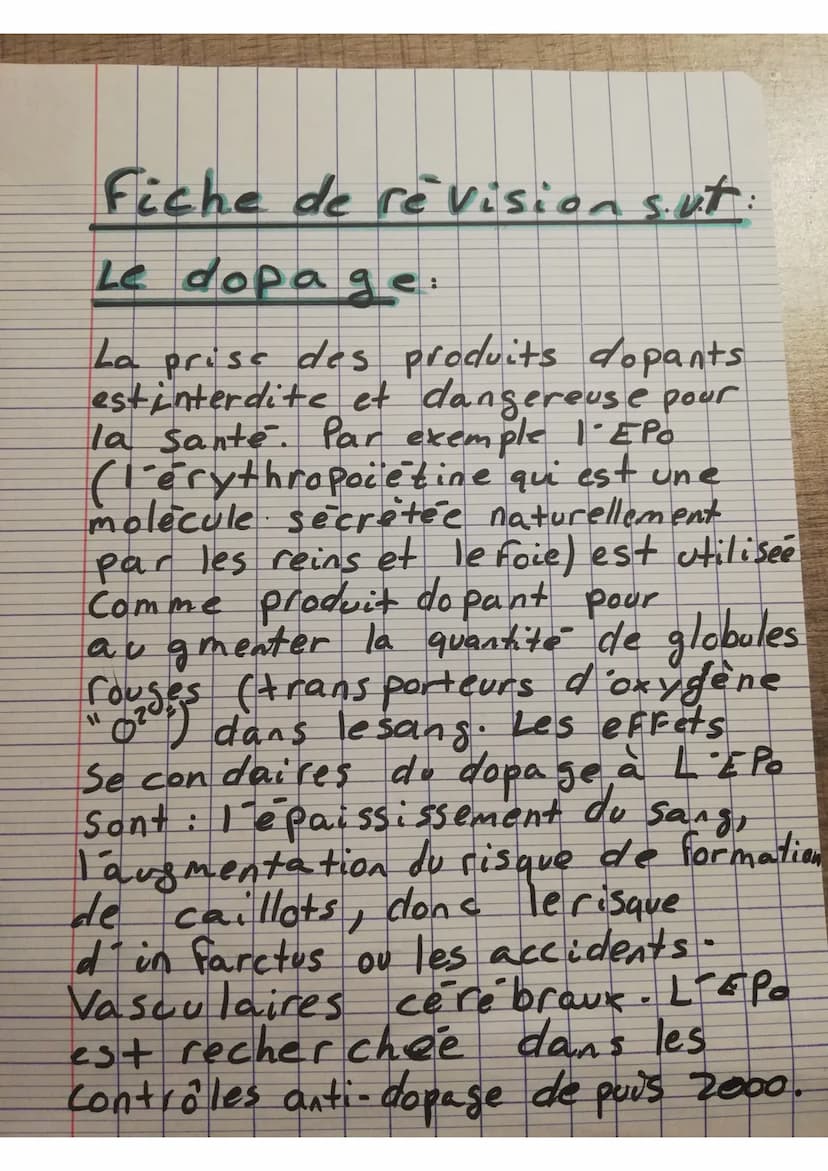 Fiche de révision s.v.t :
Le dopage :
La prise des produits dopants
est interdite et dangereuse pour
la santé. Par exemple l'EPO
(l'érythropoïétine qui est une
molécule sécrétée naturellement
par les reins et le foie) est utilisée
comme produit dopant pour
augmenter la quantité de globules
rouges (transporteurs d'oxygène
"O²") dans le sang. Les effets
secondaires du dopage à L'EPO
sont : l'épaississement du sang,
l'augmentation du risque de formation
de caillots, donc le risque
d'infarctus ou les accidents.
Vasculaires cérébraux. L'EPO
est recherchée dans les
contrôles anti-dopage depuis 2000.